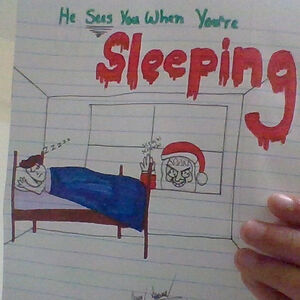 He Sees You When You're
Sleeping
zzzzz